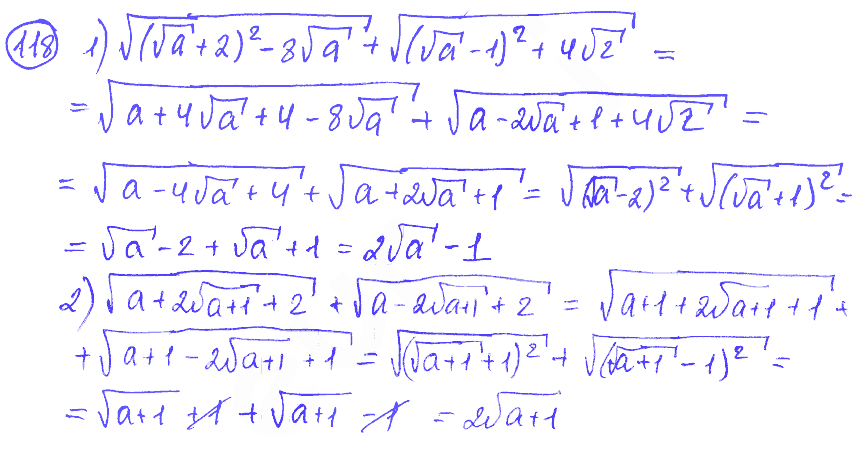 118 1) √((√a + 2)² - 8√a) + √((√a - 1)² + 4√2) =
= √(a + 4√a + 4 - 8√a) + √(a - 2√a + 1 + 4√2) =
= √(a - 4√a + 4) + √(a + 2√a + 1) = √((√a - 2)²) + √((√a + 1)²) =
= √a - 2 + √a + 1 = 2√a - 1
2) √(a + 2√(a+1) + 2) + √(a - 2√(a+1) + 2) = √(a+1 + 2√(a+1) + 1) +
+ √(a+1 - 2√(a+1) + 1) = √((√(a+1) + 1)²) + √((√(a+1) - 1)²) =
= √(a+1) + 1 + √(a+1) - 1 = 2√(a+1)